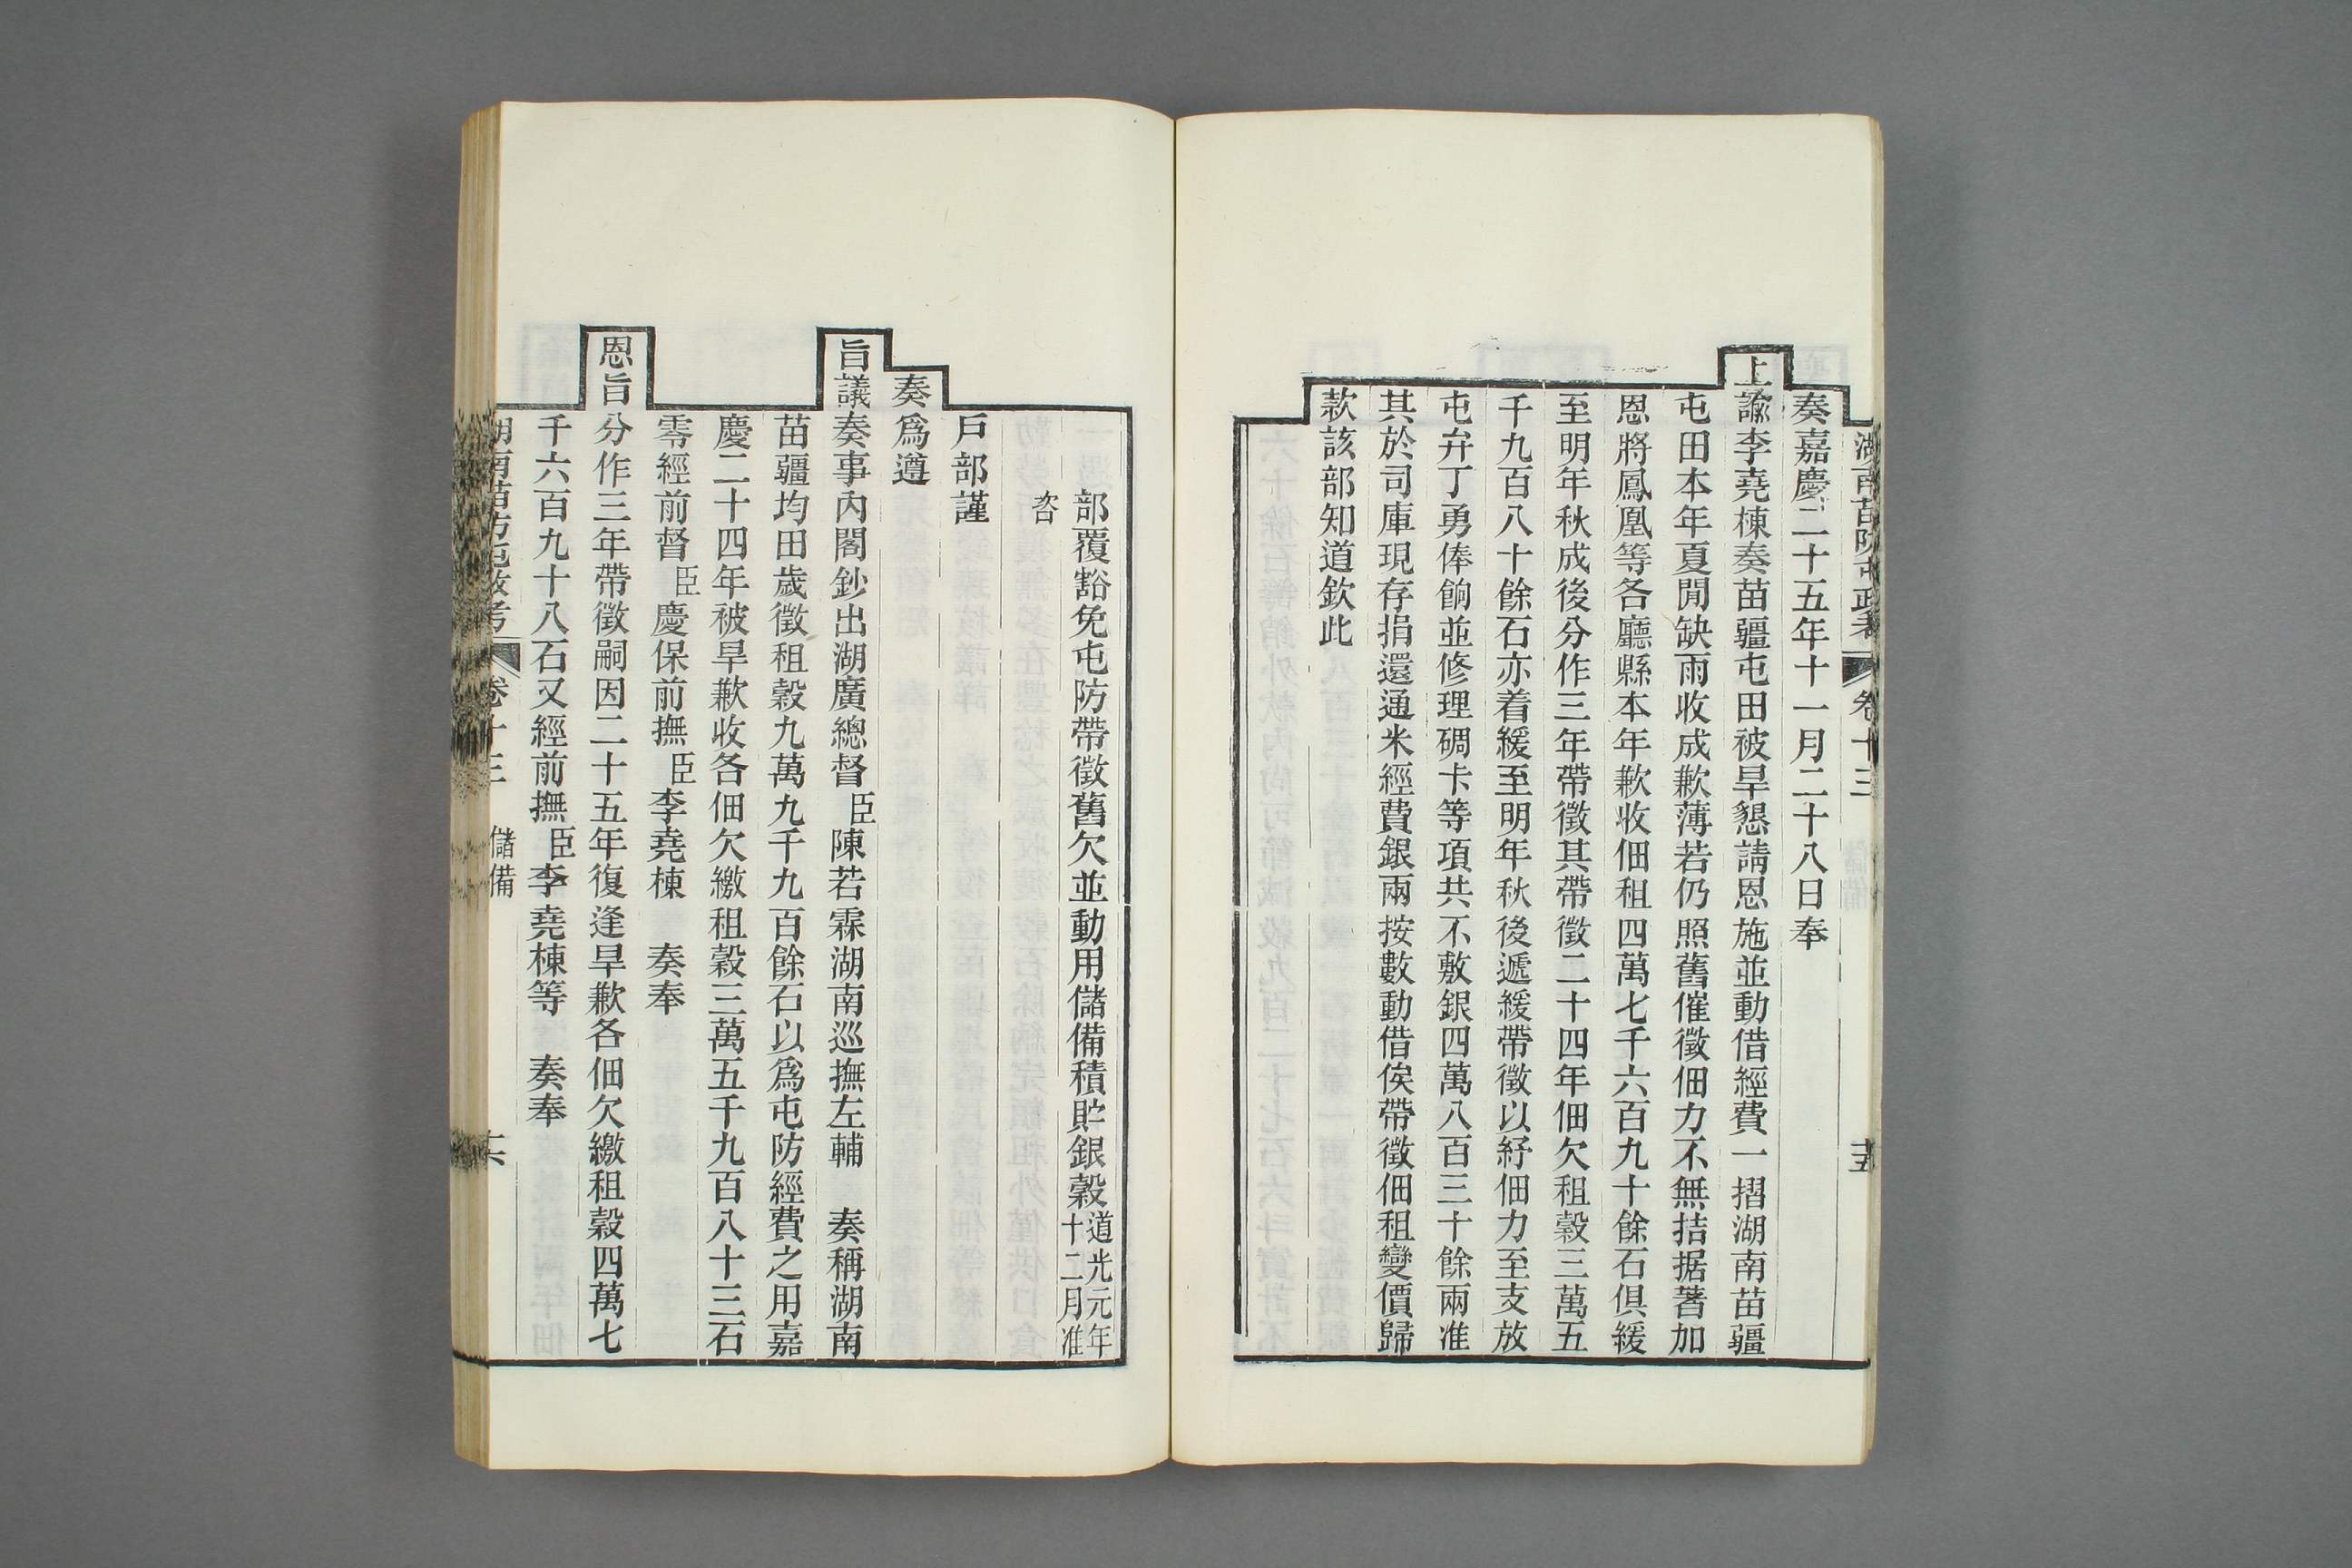 湖南苗防屯政考 卷十三 十五
奏嘉慶二十五年十一月二十八日奉
上諭李堯棟奏苗疆屯田被旱懇請恩施並動借經費一摺湖南苗疆
屯田本年夏閒缺雨收成歉薄若仍照舊催徵佃力不無拮据著加
恩將鳳凰等各廳縣本年歉收佃租四萬七千六百九十餘石俱緩
至明年秋成後分作三年帶徵其帶徵二十四年佃欠租穀三萬五
千九百八十餘石亦着緩至明年秋後遞緩帶徵以紓佃力至支放
屯弁丁勇俸餉並修理碉卡等項共不敷銀四萬八百三十餘兩准
其於司庫現存捐還通米經費銀兩按數動借俟帶徵佃租變價歸
款該部知道欽此
部覆豁免屯防帶徵舊欠並動用儲備積貯銀穀道光元年十二月准
咨
戶部謹
奏爲遵
旨議奏事內閣鈔出湖廣總督臣陳若霖湖南巡撫左輔 奏稱湖南
苗疆均田歲徵租穀九萬九千九百餘石以爲屯防經費之用嘉
慶二十四年被旱歉收各佃欠繳租穀三萬五千九百八十三石
零經前督臣慶保前撫臣李堯棟 奏奉
恩旨分作三年帶徵嗣因二十五年復逢旱歉各佃欠繳租穀四萬七
千六百九十八石又經前撫臣李堯棟等 奏奉
湖南苗防屯政考 卷十三 儲備 十六